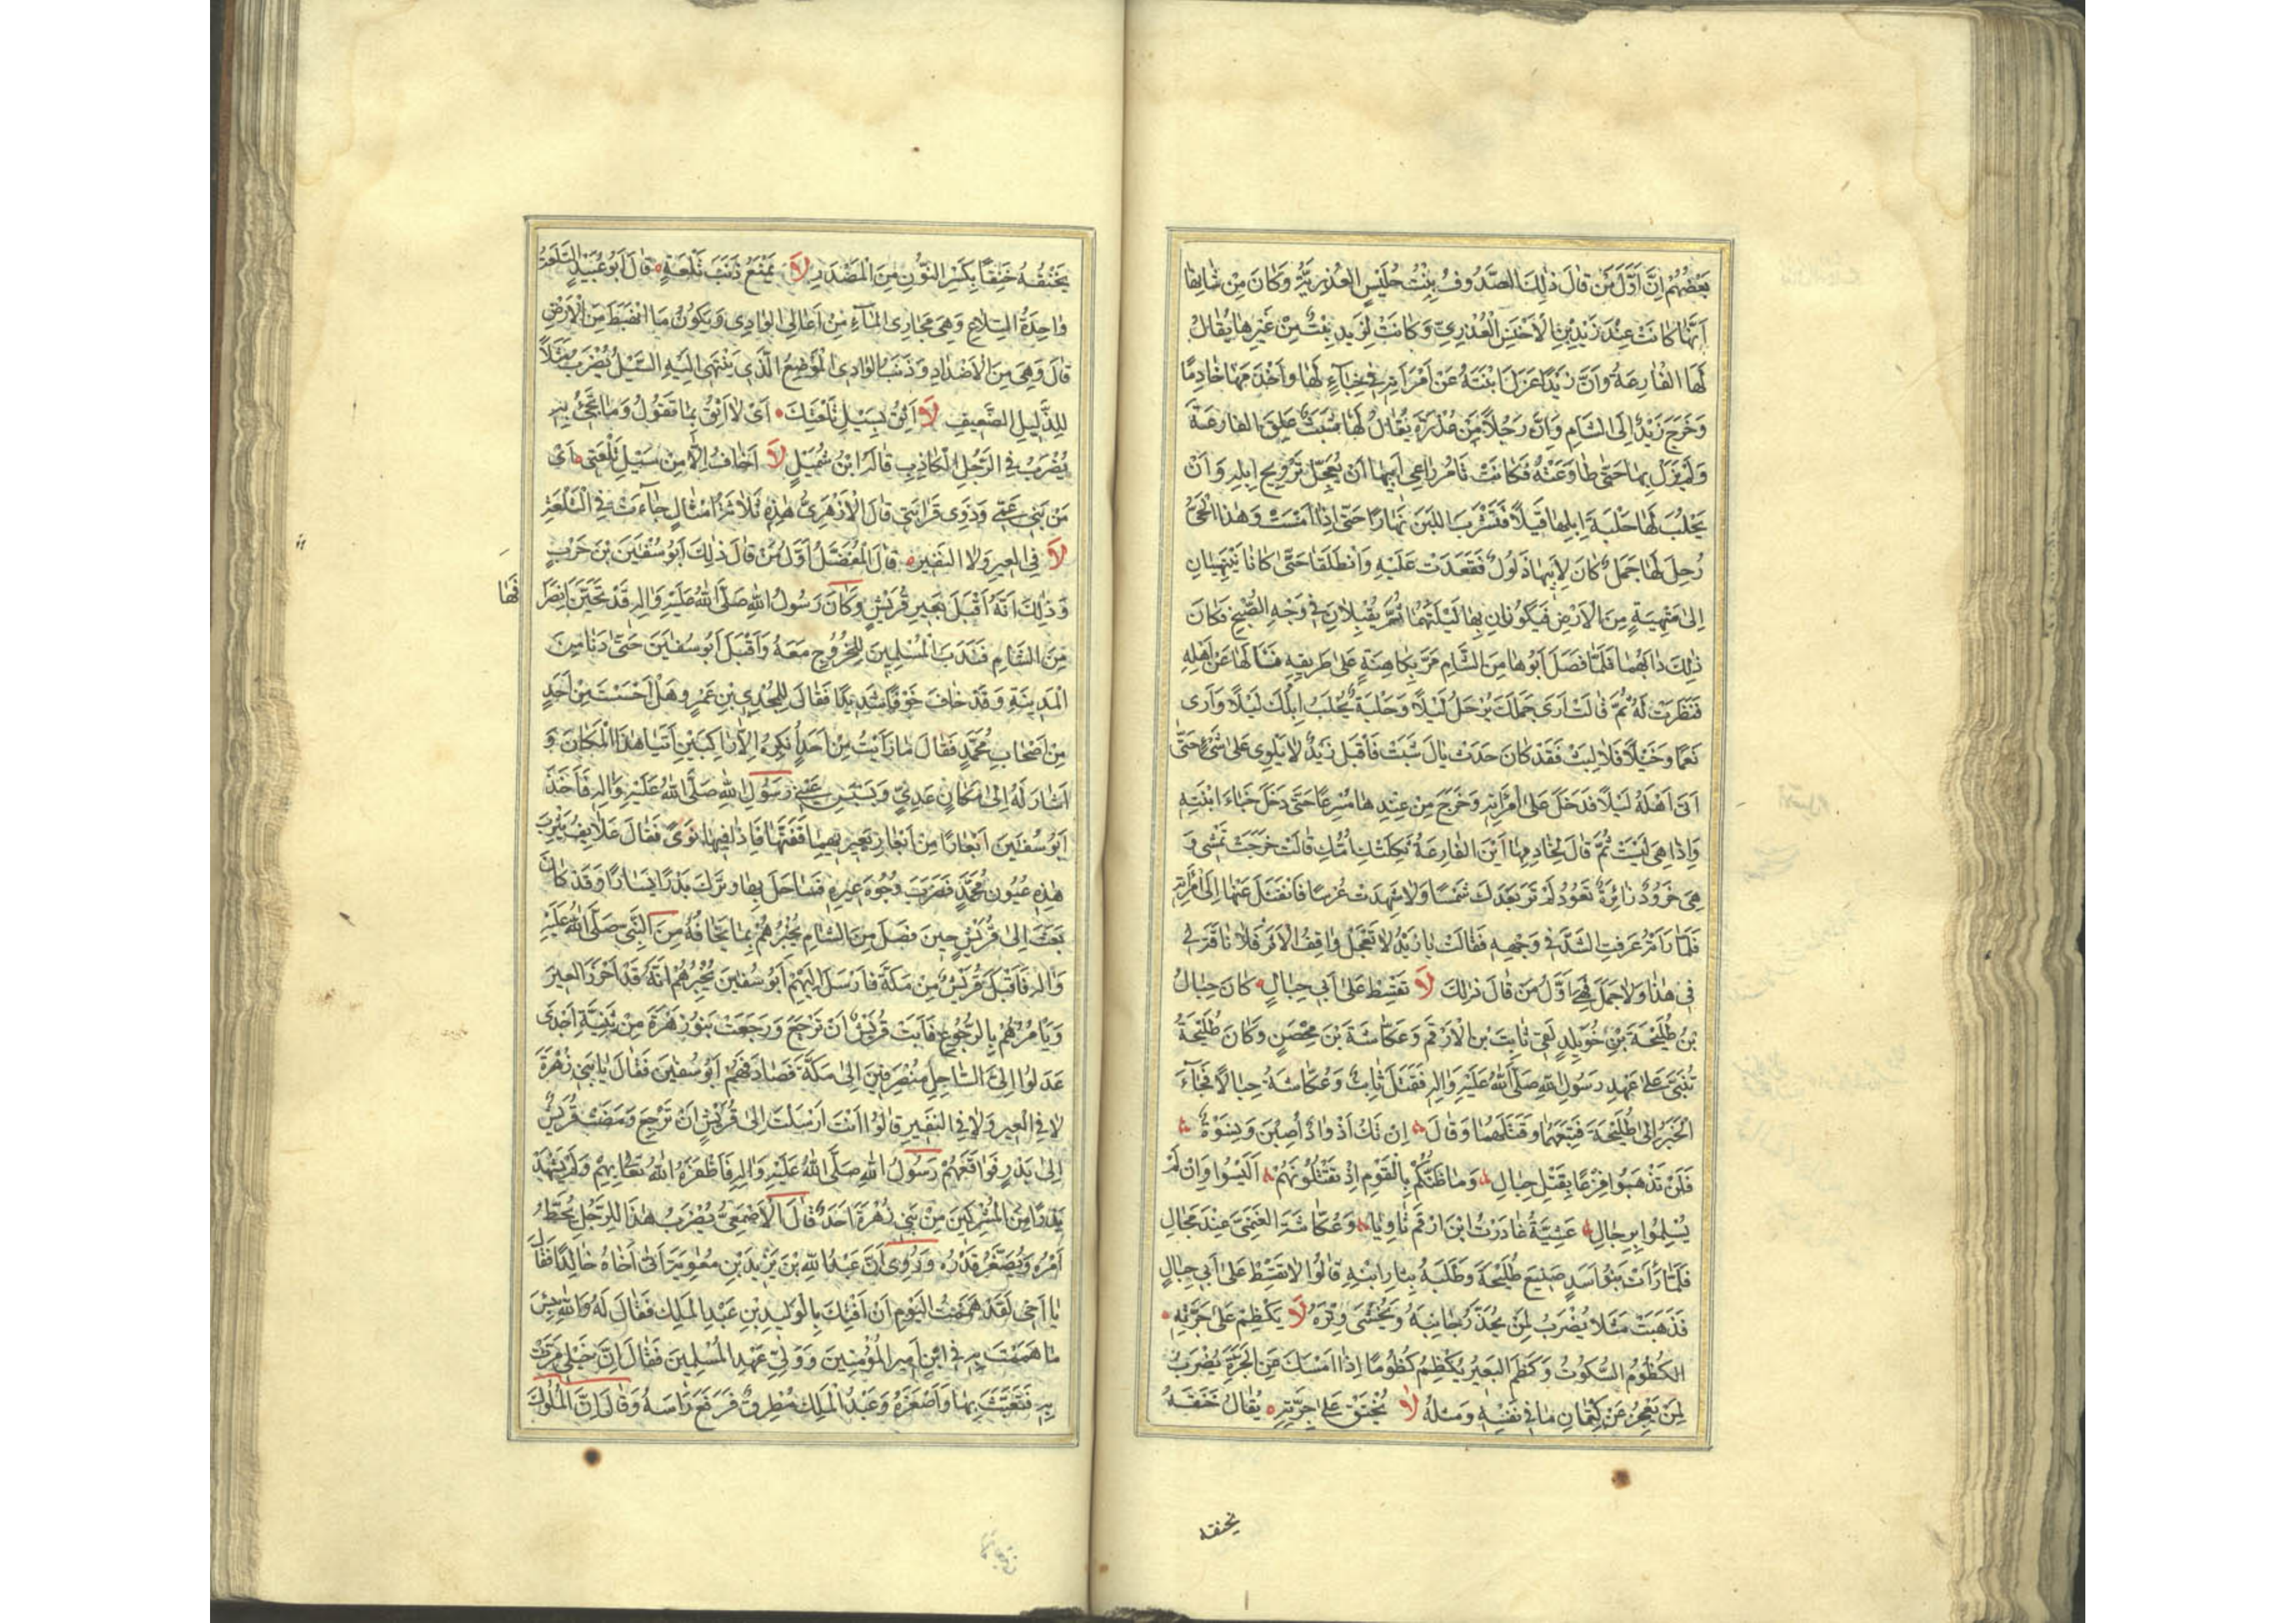 بَعْضُهُمْ اِنَّ اَوَّلَ مَنْ قَالَ ذٰلِكَ الصَّدُوفُ بِنْتُ حُلَيْسٍ العُذْرِيَّةُ وَكَانَ مِنْ شَانِهَا
اَنَّهَا كَانَتْ عِنْدَ زَيْدِ بْنِ الْاَخْنَسِ الْعُذْرِيِّ وَكَانَتْ لِزَيْدٍ بِنْتٌ مِنْ غَيْرِهَا يُقَالُ
لَهَا الْفَارِعَةُ وَاَنَّ زَيْدًا عَزَلَ ابْنَتَهُ عَنْ اَمْرَأَتِهِ فِي خِبَآءٍ لَهَا وَاَخْدَمَهَا خَادِمًا
وَخَرَجَ زَيْدٌ اِلَى الشَّامِ وَاِنَّ رَجُلاً مِنْ عُذْرَةَ يُقَالُ لَهَا شَبَثٌ عَلِقَ الفَارِعَةَ
وَلَمْ يَزَلْ بِهَا حَتَّى طَاوَعَتْهُ فَكَانَتْ تَامُرُ رَاعِي اَبِيهَا اَنْ يُعَجِّلَ تَرْوِيحَ اِبِلِهِ وَاَنْ
يَحْلُبَ لَهَا حَلْبَةَ اِبِلِهَا قَيْلاً فَتَشْرَبَ اللَّبَنَ نَهَارًا حَتَّى اِذَا اَمْسَتْ وَهَذَا الْحَيُّ
رُحِلَ لَهَا جَمَلٌ كَانَ لِاَبِيهَا ذَلُولٌ فَقَعَدَتْ عَلَيْهِ وَانْطَلَقَا حَتَّى كَانَا يَنْتَهِيَانِ
اِلَى مَتْهِيَةٍ مِنَ الْاَرْضِ فَيَكُونَانِ بِهَا لَيْلَتَهُمَا ثُمَّ يُقْبِلَانِ فِي وَجْهِ الصُّبْحِ فَكَانَ
ذٰلِكَ دَابَهُمَا فَلَمَّا فَصَلَ اَبُوهَا مِنَ الشَّامِ مَرَّ بِكَاهِنَةٍ عَلَى طَرِيقِهِ فَسَاَلَهَا عَنْ اَهْلِهِ
فَنَظَرَتْ لَهُ ثُمَّ قَالَتْ اَرَى جَمَلَكَ يُرْحَلُ لَيْلًا وَحَلْبَةً تُحْلَبُ اِبِلُكَ لَيْلًا وَاَرَى
نَعَمًا وَخَيْلًا فَلَا لَبِثَ فَقَدْ كَانَ حَدَثٌ بِاٰلِ شَبَثٍ فَاَقْبَلَ زَيْدٌ لَا يَلْوِي عَلَى شَيْءٍ حَتَّى
اَتَى اَهْلَهُ لَيْلًا فَدَخَلَ عَلَى امْرَأَتِهِ وَخَرَجَ مِنْ عِنْدِهَا مُسْرِعًا حَتَّى دَخَلَ خِبَاءَ ابْنَتِهِ
وَاِذَا هِيَ لَيْسَتْ ثَمَّ قَالَ لِخَادِمِهَا اَيْنَ الفَارِعَةُ ثَكِلَتْكِ اُمُّكِ قَالَتْ خَرَجَتْ تَمْشِي وَ
هِيَ خَرُودٌ زَائِرَةٌ تَعُودُ لَمْ تَرَ بَعْدَكَ شَمْسًا وَلَا شَهِدَتْ عُرْسًا فَانْفَتَلَ عَنْهَا اِلَى امْرَأَتِهِ
فَلَمَّا رَأَتْهُ عَرَفَتِ الشَّرَّ فِي وَجْهِهِ فَقَالَتْ يَا زَيْدُ لَا تَعْجَلْ وَاقْفُ الْاَثَرَ فَلَا نَاقَةَ لِي
فِي هٰذَا وَلَا جَمَلَ فَهِيَ اَوَّلُ مَنْ قَالَ ذٰلِكَ لَا تَقْسِطْ عَلَى اَبِي حِبَالٍ كَانَ حِبَالُ
بْنُ طُلَيْحَةَ بْنِ خُوَيْلِدٍ لَقِيَ ثَابِتَ بْنَ الْاَرْقَمِ وَعُكَّاشَةَ بْنَ مِحْصَنٍ وَكَانَ طُلَيْحَةُ
تَنَبَّى عَلَى عَهْدِ رَسُولِ اللهِ صَلَّى اللهُ عَلَيْهِ وَاٰلِهِ فَقَتَلَ ثَابِتٌ وَعُكَّاشَةُ حِبَالًا فَجَآءَ
الْخَبَرُ اِلَى طُلَيْحَةَ فَتَبِعَهُمَا وَقَتَلَهُمَا وَقَالَ اِنْ تَكُ اَذْوَادٌ اُصِبْنَ وَنِسْوَةٌ
فَلَنْ تَذْهَبُوا فِرْغًا بِقَتْلِ حِبَالِ وَمَا ظَنُّكُمْ بِالْقَوْمِ اِذْ تَقْتُلُونَهُمْ اَلَيْسُوا وَاِنْ لَمْ
يُسْلِمُوا بِرِجَالِ عَشِيَّةَ غَادَرْتُ ابْنَ اَرْقَمَ ثَاوِيًا وَعُكَّاشَةَ الغَنْمِيَّ عِنْدَ مَجَالِ
فَلَمَّا رَأَتْ بَنُو اَسَدٍ صَنِيعَ طُلَيْحَةَ وَطَلَبَهُ بِثَارِ ابْنِهِ قَالُوا لَا تَقْسِطْ عَلَى اَبِي حِبَالٍ
فَذَهَبَتْ مَثَلًا يُضْرَبُ لِمَنْ يُحَذَّرُ جَانِبُهُ وَيُخْشَى وِتْرُهُ لَا يَكْظِمُ عَلَى جَرَّتِهِ
الكُظُومُ السُّكُوتُ وَكَظَمَ البَعِيرُ يَكْظِمُ كُظُومًا اِذَا اَمْسَكَ مِنَ الْجَرَّةِ يُضْرَبُ
لِمَنْ يَعْجِزُ عَنْ كِتْمَانِ مَا فِي نَفْسِهِ وَمِثْلُهُ لَا يُخْنَقُ عَلَى جَرَّتِهِ يُقَالُ خَنَقَهُ
يخنقه
يَخْنُقُهُ خَنِقًا بِكَسْرِ النُّونِ مِنَ الْمَصْدَرِ لَا يَمْنَعُ ذَنَبَ تَلْعَةٍ قَالَ اَبُو عُبَيْدٍ التَّلْعَةُ
وَاحِدَةُ التِّلَاعِ وَهِيَ مَجَارِي المَآءِ مِنْ اَعَالِي الوَادِي وَيَكُونُ مَا انْهَبَطَ مِنَ الْاَرْضِ
قَالَ وَهِيَ مِنَ الْاَضْدَادِ وَذَنَبُ الوَادِي الْمَوْضِعُ الَّذِي يَنْتَهِي اِلَيْهِ السَّيْلُ يُضْرَبُ مَثَلًا
لِلذَّلِيلِ الضَّعِيفِ لَا اَثِقُ بِسَيْلِ تَلْعَتِكَ اَيْ لَا اَثِقُ بِمَا تَقُولُ وَمَا تَجِئُ بِهِ
يُضْرَبُ فِي الرَّجُلِ الْكَاذِبِ قَالَ ابْنُ شُمَيْلٍ لَا اَخَافُ اِلَّا مِنْ سَيْلِ تَلْعَتِي اَيْ
مِنْ بَنِي عَمِّي وَذَوِي قَرَابَتِي قَالَ الْاَزْهَرِيُّ هٰذِهِ ثَلَاثَةُ اَمْثَالٍ جَآءَتْ فِي التَّلْعَةِ
لَا فِي العِيرِ وَلَا النَّفِيرِ قَالَ الْمُفَضَّلُ اَوَّلُ مَنْ قَالَ ذٰلِكَ اَبُو سُفْيٰنَ بْنُ حَرْبٍ
وَذٰلِكَ اَنَّهُ اَقْبَلَ بِعِيرِ قُرَيْشٍ وَكَانَ رَسُولُ اللهِ صَلَّى اللهُ عَلَيْهِ وَاٰلِهِ قَدْ تَحَيَّنَ انْصِرَا
فَهَا
مِنَ الشَّامِ فَنَدَبَ الْمُسْلِمِينَ لِلْخُرُوجِ مَعَهُ وَاَقْبَلَ اَبُو سُفْيٰنَ حَتَّى دَنَا مِنَ
الْمَدِينَةِ وَقَدْ خَافَ خَوْفًا شَدِيدًا فَقَالَ لِلْمَجْدِيِّ بْنِ عَمْرٍو هَلْ اَحْسَسْتَ مِنْ اَحَدٍ
مِنْ اَصْحَابِ مُحَمَّدٍ فَقَالَ مَا رَاَيْتُ مِنْ اَحَدٍ اُنْكِرُهُ اِلَّا رَاكِبَيْنِ اَتَيَا هٰذَا الْمَكَانَ وَ
اَشَارَ لَهُ اِلَى مَكَانِ عَدِيٍّ وَبَسْبَسٍ عَيْنَيْ رَسُولِ اللهِ صَلَّى اللهُ عَلَيْهِ وَاٰلِهِ فَاَخَذَ
اَبُو سُفْيٰنَ اَبْعَارًا مِنْ اَبْعَارِ بَعِيرَيْهِمَا فَفَتَّهَا فَاِذَا فِيهَا نَوًى فَقَالَ عَلَايِفُ يَثْرِبَ
هٰذِهِ عُيُونُ مُحَمَّدٍ فَضَرَبَ وُجُوهَ عِيرِهِ فَسَاحَلَ بِهَا وَتَرَكَ بَدْرًا يَسَارًا وَقَدْ كَانَ
بَعَثَ اِلَى قُرَيْشٍ حِينَ فَصَلَ مِنَ الشَّامِ يُخْبِرُهُمْ بِمَا يَخَافُهُ مِنَ النَّبِيِّ صَلَّى اللهُ عَلَيْهِ
وَاٰلِهِ فَاَقْبَلَتْ قُرَيْشٌ مِنْ مَكَّةَ فَاَرْسَلَ اِلَيْهِمْ اَبُو سُفْيٰنَ يُخْبِرُهُمْ اَنَّهُ قَدْ اَحْرَزَ العِيرَ
وَيَأْمُرُهُمْ بِالرُّجُوعِ فَاَبَتْ قُرَيْشٌ اَنْ تَرْجِعَ وَرَجَعَتْ بَنُو زُهْرَةَ مِنْ ثَنِيَّةِ اَجْدَى
عَدَلُوا اِلَى السَّاحِلِ مُنْصَرِفِينَ اِلَى مَكَّةَ فَصَادَفَهُمْ اَبُو سُفْيٰنَ فَقَالَ يَا بَنِي زُهْرَةَ
لَا فِي الْعِيرِ وَلَا فِي النَّفِيرِ قَالُوا اَنْتَ اَرْسَلْتَ اِلَى قُرَيْشٍ اَنْ تَرْجِعَ وَمَضَتْ قُرَيْشٌ
اِلَى بَدْرٍ فَوَاقَعَهُمْ رَسُولُ اللهِ صَلَّى اللهُ عَلَيْهِ وَاٰلِهِ فَاَظْفَرَهُ اللهُ تَعَالَى بِهِمْ وَلَمْ يَشْهَدْ
بَدْرًا مِنَ الْمُشْرِكِينَ مِنْ بَنِي زُهْرَةَ اَحَدٌ قَالَ الْاَصْمَعِيُّ يُضْرَبُ هٰذَا لِلرَّجُلِ يُحَطُّ
اَمْرُهُ وَيُصَغَّرُ قَدْرُهُ وَرُوِيَ اَنَّ عَبْدَ اللهِ بْنَ يَزِيدَ بْنِ مُعٰوِيَةَ اَتَى اَخَاهُ خَالِدًا فَقَالَ
يَا اَخِي لَقَدْ هَمَمْتُ اليَوْمَ اَنْ اَفْتِكَ بِالْوَلِيدِ بْنِ عَبْدِ الْمَلِكِ فَقَالَ لَهُ وَاللهِ بِئْسَ
مَا هَمَمْتَ بِهِ فِي ابْنِ اَمِيرِ الْمُؤْمِنِينَ وَوَلِيِّ عَهْدِ الْمُسْلِمِينَ فَقَالَ اِنَّ خَيْلِي مَرَّتْ
بِهِ فَتَعَبَّثَ بِهَا وَاَصْغَرَهُ وَعَبْدُ الْمَلِكِ مُطْرِقٌ فَرَفَعَ رَاْسَهُ وَقَالَ اِنَّ الْمُلُوكَ